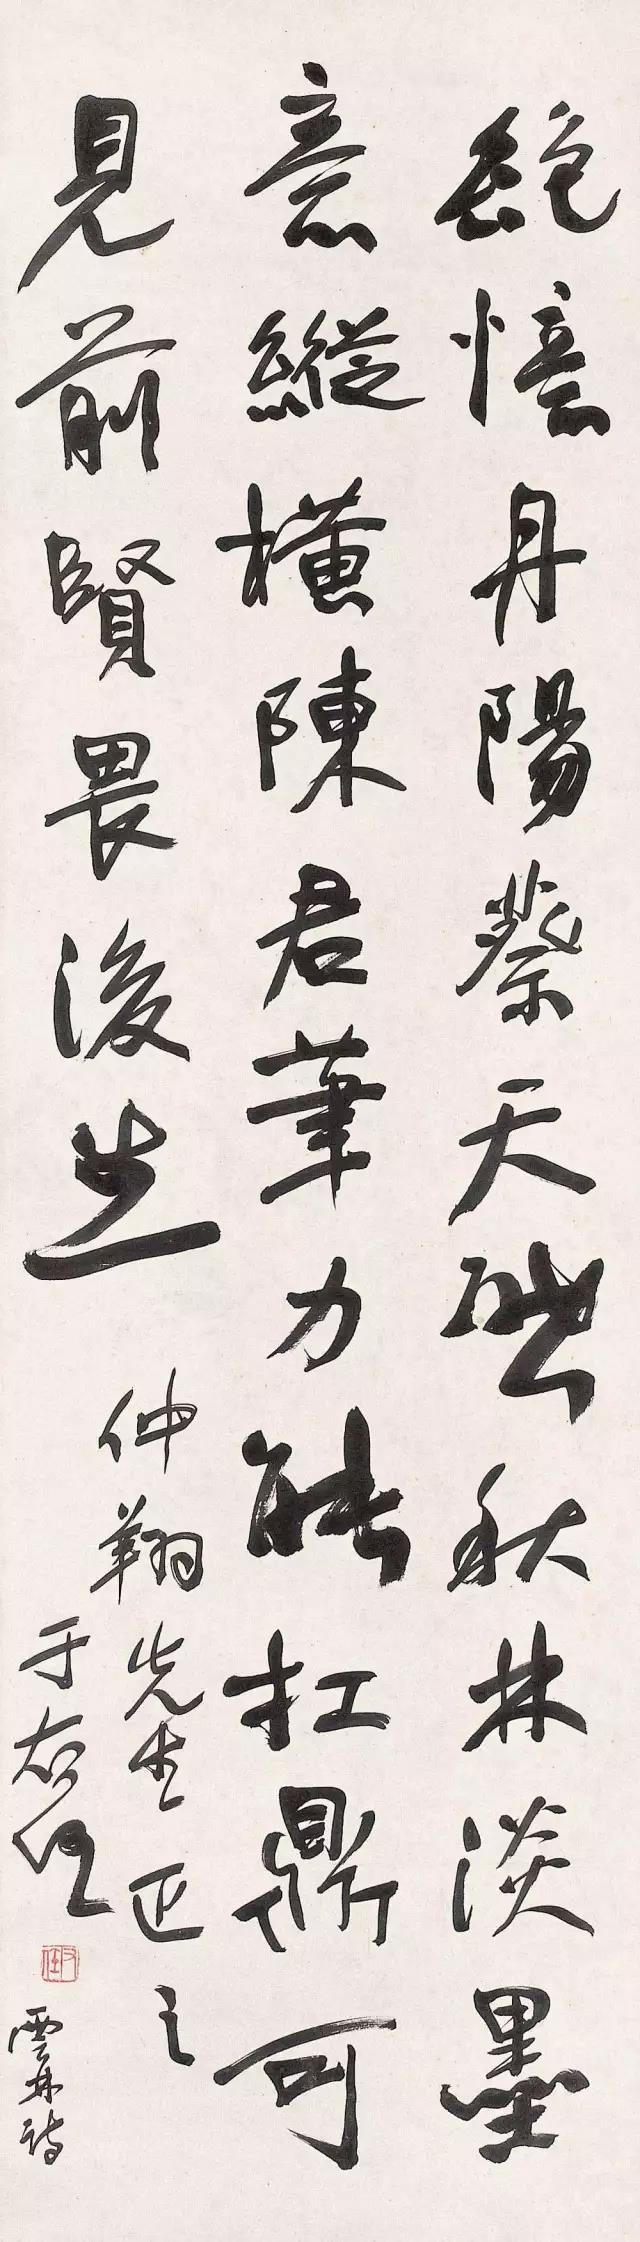 絕憶丹陽蔡天啓秋林淡墨
意縱橫陳君筆力能扛鼎可
見前賢畏後生
仲翔先生正之
于右任
右任
雲林詩